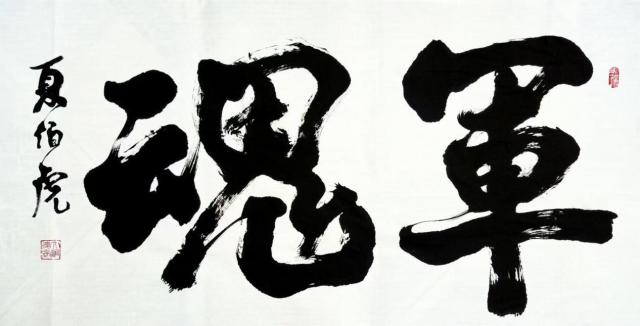 軍魂
夏伯虎